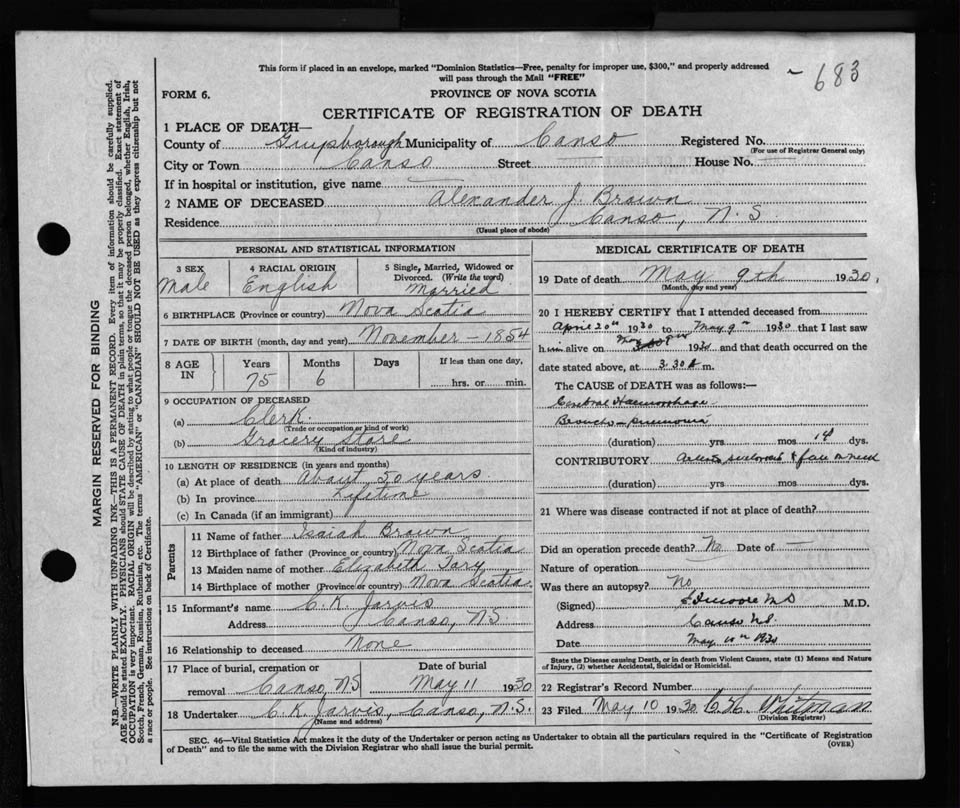 This form if placed in an envelope, marked "Dominion Statistics—Free, penalty for improper use, $300," and properly addressed
will pass through the Mail "FREE"
683
FORM 6.
PROVINCE OF NOVA SCOTIA
CERTIFICATE OF REGISTRATION OF DEATH
1 PLACE OF DEATH—
County of Guysborough Municipality of Canso Registered No.
(For use of Registrar General only)
City or Town Canso Street House No.
If in hospital or institution, give name
2 NAME OF DECEASED Alexander J. Brown
Residence Canso, N.S
(Usual place of abode)
PERSONAL AND STATISTICAL INFORMATION
3 SEX
Male
4 RACIAL ORIGIN
English
5 Single, Married, Widowed or
Divorced. (Write the word)
Married
6 BIRTHPLACE (Province or country) Nova Scotia
7 DATE OF BIRTH (month, day and year) November – 1854
8 AGE IN
Years Months Days If less than one day,
75 6 hrs. or min.
9 OCCUPATION OF DECEASED
(a) Clerk
(Trade or occupation or kind of work)
(b) Grocery Store
(Kind of industry)
10 LENGTH OF RESIDENCE (in years and months)
(a) At place of death About 50 years
(b) In province Lifetime
(c) In Canada (if an immigrant)
Parents
11 Name of father Isaiah Brown
12 Birthplace of father (Province or country) Nova Scotia
13 Maiden name of mother Elizabeth
14 Birthplace of mother (Province or country) Nova Scotia
15 Informant's name C. K. Jarvis
Address Canso, N.S.
16 Relationship to deceased None
17 Place of burial, cremation or Date of burial
removal Canso, N.S May 11 1930
18 Undertaker C. K. Jarvis, Canso, N.S.
(Name and address)
MEDICAL CERTIFICATE OF DEATH
19 Date of death May 9th 1930.
(Month, day and year)
20 I HEREBY CERTIFY that I attended deceased from
April 20th 1930 to May 9th 1930 that I last saw
him alive on May 9th 1930 and that death occurred on the
date stated above, at 3.30 m.
The CAUSE of DEATH was as follows:—
Cerebral Haemorrhage
Broncho-pneumonia
(duration) yrs. mos 19 dys.
CONTRIBUTORY
(duration) yrs. mos. dys.
21 Where was disease contracted if not at place of death?
Did an operation precede death? No Date of —
Nature of operation
Was there an autopsy? No
(Signed) M.D.
Address Canso N.S.
Date May 10th 1930
State the Disease causing Death, or in death from Violent Causes, state (1) Means and Nature
of Injury, (2) whether Accidental, Suicidal or Homicidal.
22 Registrar's Record Number
23 Filed May 10 1930 Whitman
(Division Registrar)
SEC. 46—Vital Statistics Act makes it the duty of the Undertaker or person acting as Undertaker to obtain all the particulars required in the "Certificate of Registration
of Death" and to file the same with the Division Registrar who shall issue the burial permit.
(OVER)
MARGIN RESERVED FOR BINDING
N.B.—WRITE PLAINLY WITH UNFADING INK—THIS IS A PERMANENT RECORD. Every item of information should be carefully supplied.
AGE should be stated EXACTLY. PHYSICIANS should STATE CAUSE OF DEATH in plain terms, so that it may be properly classified. Exact statement of
OCCUPATION is very important. RACIAL ORIGIN will be described by stating to what people or tongue the deceased person belonged, whether English, Irish,
Scotch, French, German, Russian, Ruthenian, etc. The terms "AMERICAN" or "CANADIAN" SHOULD NOT BE USED as they express citizenship but not
a race or people. See instructions on back of Certificate.